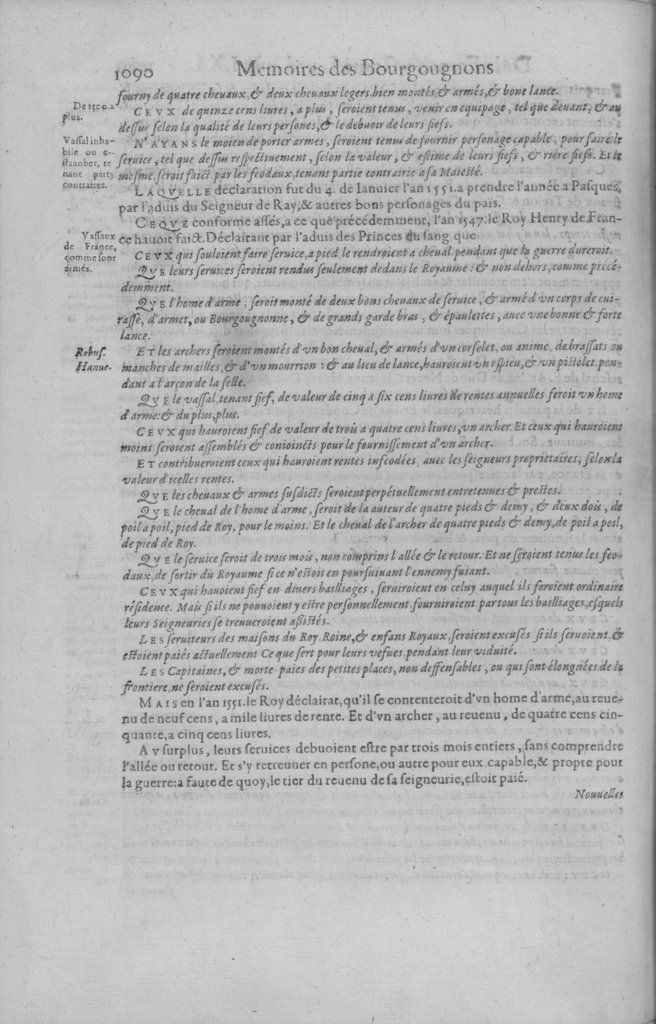 1090 Memoires des Bourgougnons
fourny de quatre cheuaux, & deux cheuaux legers, bien montés & armés, & bone lance.
De 1500. a plus.
CEVX de quinze cens liures, a plus, seroient tenus, venir en equipage, tel que deuant, & au
dessus selon la qualité de leurs persones, & le debuoir de leurs fiefs.
Vassal inha-
bile ou e-
stranher, te
nant party
contraires.
N'AYANS le moien de porter armes, seroient tenus de fournir personage capable, pour faire le
seruice, tel que dessus respectiuement, selon la valeur, & estime de leurs fiefs, & riére fiefs. Et le
mesme, seroit faict par les feodaux, tenans partie contrairie a sa Maiesté.
LAQVELLE déclaration fut du 4. de Ianuier l'an 1551. a prendre l'année a Pasques,
par l'aduis du Seigneur de Ray, & autres bons personages du païs.
CEQVE conforme assés, a ce que précédemment, l'an 1547. le Roy Henry de Fran-
ce hauoit faict. Déclairant par l'aduis des Princes du sang que.
Vassaux
de France,
comme sont
armés.
CEVX qui souloient faire seruice, a pied, le rendroient a cheual, pendant que la guerre dureroit.
QVE leurs seruices seroient rendus seulement dedans le Royaume: & non dehors, comme précé-
demment.
QVE l'home d'arme, seroit monté de deux bons cheuaux de seruice, & armé d'vn corps de cui-
rasse, d'armet, ou Bourgougnonne, & de grands garde bras, & épaulettes, auec vne bonne & forte
lance.
Rebuf.
Hanue.
ET les archers seroient montés d'vn bon cheual, & armés d'vn corselet, ou anime, de brassats ou
manches de mailles, & d'vn mourrion: & au lieu de lance, hauroient vn espieu, & vn pistolet, pen-
dant a l'arçon de la selle.
QVE le vassal, tenant fief, de valeur de cinq a six cens liures de rentes annuelles feroit vn home
d'arme: & du plus, plus.
CEVX qui hauroient fief, de valeur de trois a quatre cens liures, vn archer. Et ceux qui hauroient
moins seroient assemblés & conioincts pour le fournissement d'vn archer.
ET contribueroient ceux qui hauroient rentes infeodées, auec les seigneurs proprietaires, selon la
valeur d'icelles rentes.
QVE les cheuaux & armes susdicts seroient perpétuellement entretenues & prestes.
QVE le cheual de l'home d'arme, seroit de la auteur de quatre pieds & demy, & deux dois, de
poil a poil, pied de Roy, pour le moins. Et le cheual de l'archer de quatre pieds & demy, de poil a poil,
de pied de Roy.
QVE le seruice seroit de trois mois, non comprins l'allée & le retour. Et ne seroient tenus les feo-
daux, de sortir du Royaume si ce n'estoit en poursuiuant l'ennemy fuiant.
CEVX qui hauoient fief en diuers bailliages, seruiroient en celuy auquel ils feroient ordinaire
résidence. Mais si ils ne pouuoient y estre personnellement, fourniroient par tous les bailliages, esquels
leurs Seigneuries se treuueroient assistés.
LES seruiteurs des maisons du Roy, Roine, & enfans Royaux, seroient excusés si ils seruoient, &
estoient paiés actuellement Ce que sert pour leurs vefues, pendant leur viduité.
LES Capitaines, & morte-paies des petites places, non deffensables, ou qui sont élongnées de la
frontiere, ne seroient excusés.
MAIS en l'an 1551. le Roy déclairat, qu'il se contenteroit d'vn home d'arme, au reue-
nu de neuf cens, a mile liures de rente. Et d'vn archer, au reuenu, de quatre cens cin-
quante, a cinq cens liures.
AV surplus, leurs seruices debuoient estre par trois mois entiers, sans comprendre
l'allée ou retour. Et s'y retreuuer en persone, ou autre pour eux, capable, & propre pour
la guerre: a faute de quoy, le tier du reuenu de sa seigneurie, estoit paié.
Nouuelles